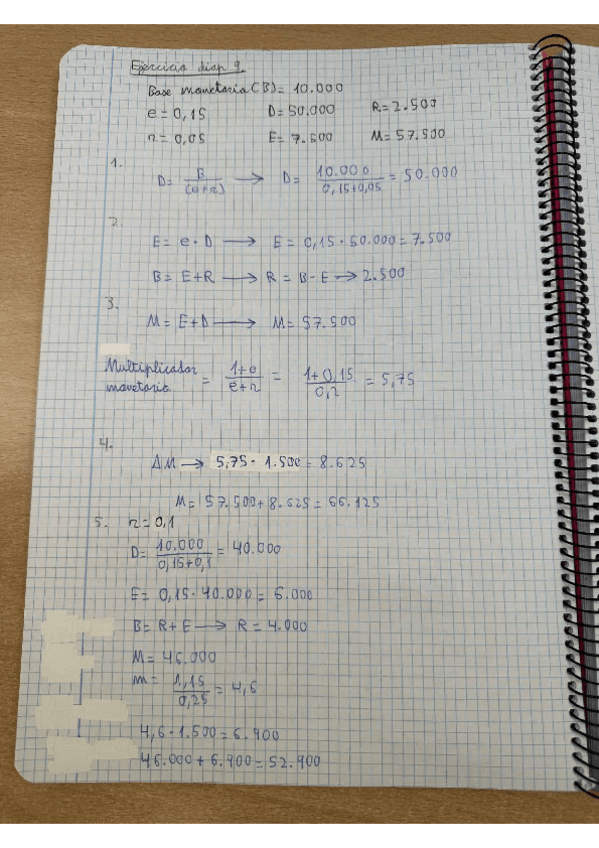 Ejercicio diap 9.
Base monetaria (B) = 10.000
e = 0,15 D = 50.000 R = 2.500
r = 0,05 E = 7.500 M = 57.500
1.
D = B/(e+r) → D = 10.000/0,15+0,05 = 50.000
2.
E = e · D → E = 0,15 · 50.000 = 7.500
B = E+R → R = B-E → 2.500
3.
M = E+D → M = 57.500
Multiplicador monetario = 1+e/e+r = 1+0,15/0,2 = 5,75
4.
ΔM → 5,75 · 1.500 = 8.625
M = 57.500 + 8.625 = 66.125
5. r = 0,1
D = 10.000/0,15+0,1 = 40.000
E = 0,15 · 40.000 = 6.000
B = R + E → R = 4.000
M = 46.000
m = 1,15/0,25 = 4,6
4,6 · 1.500 = 6.900
46.000 + 6.900 = 52.900